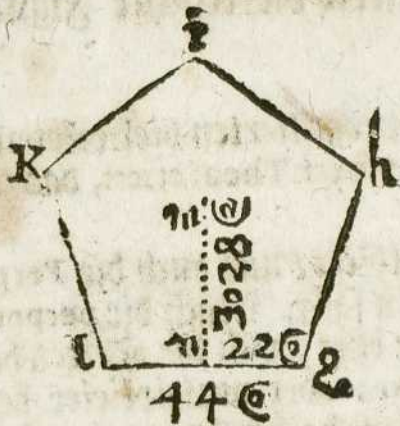 i
K h
m
3028②
n 22⓪
l g
44⓪